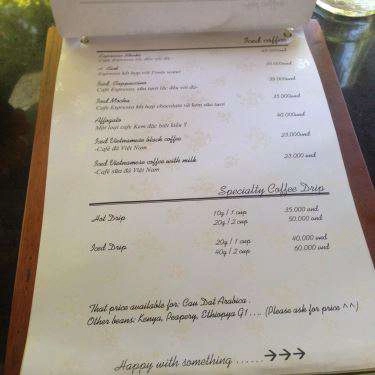 Iced coffee
Espresso Shake 40.000vnd
Cafe Espresso lắc đều với đá
Espresso kết hợp với 35.000vnd
Iced Cappuccino 35.000vnd
Cafe Espresso, sữa tươi lắc đều với đá
Iced Mocha 35.000vnd
Cafe Espresso kết hợp chocolate với kem sữa tươi
Affogato 40.000 vnd
Một loại cafe Kem đặc biệt kiểu Ý
Iced Vietnamese black coffee 23.000vnd
-Café đá Việt Nam
Iced Vietnamese coffee with milk 23.000 vnd
-Café sữa đá Việt Nam
Specialty Coffee Drip
Hot Drip 10g / 1 cup 35.000 vnd
20g / 2 cup 50.000 vnd
Iced Drip 20g / 1 cup 40.000 vnd
40g / 2 cup 60.000 vnd
That price available for: Cau Dat Arabica .
Other beans: Kenya, Peapery, Ethiopya G1 . . . . (Please ask for price ^^)
Happy with something . . . . . . →→→